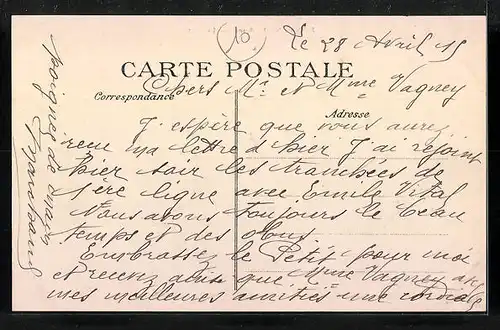 10
Le 28 Avril 15
CARTE POSTALE
Correspondance
Chers Mr. et Mme Vagney
Adresse
J'espère que vous aurez
recu ma lettre d'hier J'ai rejoint
hier soir les tranchées de
1ère ligne avec Emile Vital
Nous avons toujours le beau
temps et des obus
Embrassez le Petit pour moi
et recevez ainsi que Mme Vagney avec
mes meilleures amitiés une cordiale
poignée de main